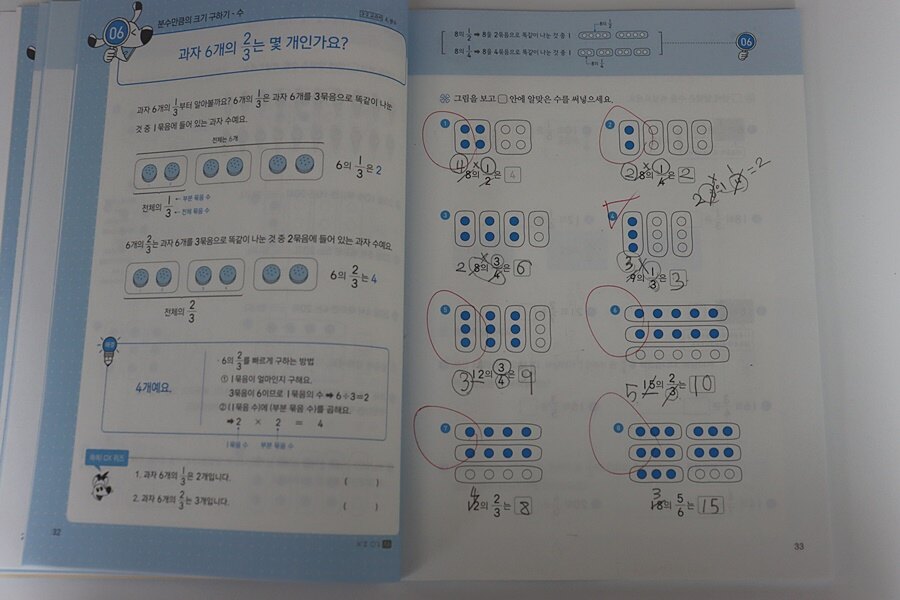 06
분수만큼의 크기 구하기 - 수
과자 6개의 2/3는 몇 개인가요?
과자 6개의 1/3부터 알아볼까요? 6개의 1/3은 과자 6개를 3묶음으로 똑같이 나눈
것 중 1묶음에 들어 있는 과자 수예요.
전체는 6개
6의 1/3은 2
전체의 1/3 ← 부분 묶음 수
← 전체 묶음 수
6개의 2/3는 과자 6개를 3묶음으로 똑같이 나눈 것 중 2묶음에 들어 있는 과자 수예요.
6의 2/3는 4
전체의 2/3
4개예요.
· 6의 2/3를 빠르게 구하는 방법
① 1묶음이 얼마인지 구해요.
3묶음이 6이므로 1묶음의 수 ➡ 6÷3=2
② (1묶음 수)에 (부분 묶음 수)를 곱해요.
➡ 2 × 2 = 4
1묶음 수 부분 묶음 수
OX 퀴즈
1. 과자 6개의 1/3은 2개입니다. ( )
2. 과자 6개의 2/3는 3개입니다. ( )
32
8의 1/2 ➡ 8을 2묶음으로 똑같이 나눈 것 중 1
8의 1/2
8의 1/4 ➡ 8을 4묶음으로 똑같이 나눈 것 중 1
8의 1/4
06
그림을 보고 □ 안에 알맞은 수를 써넣으세요.
1
4 × 8의 1/2은 4
2
2 × 8의 1/4은 2
3
2 × 8의 3/4은 6
4
3 × 9의 1/3은 3
5
3 12의 3/4은 9
6
5 15의 2/3는 10
7
4
12의 2/3는 8
8
3
18의 5/6는 15
33